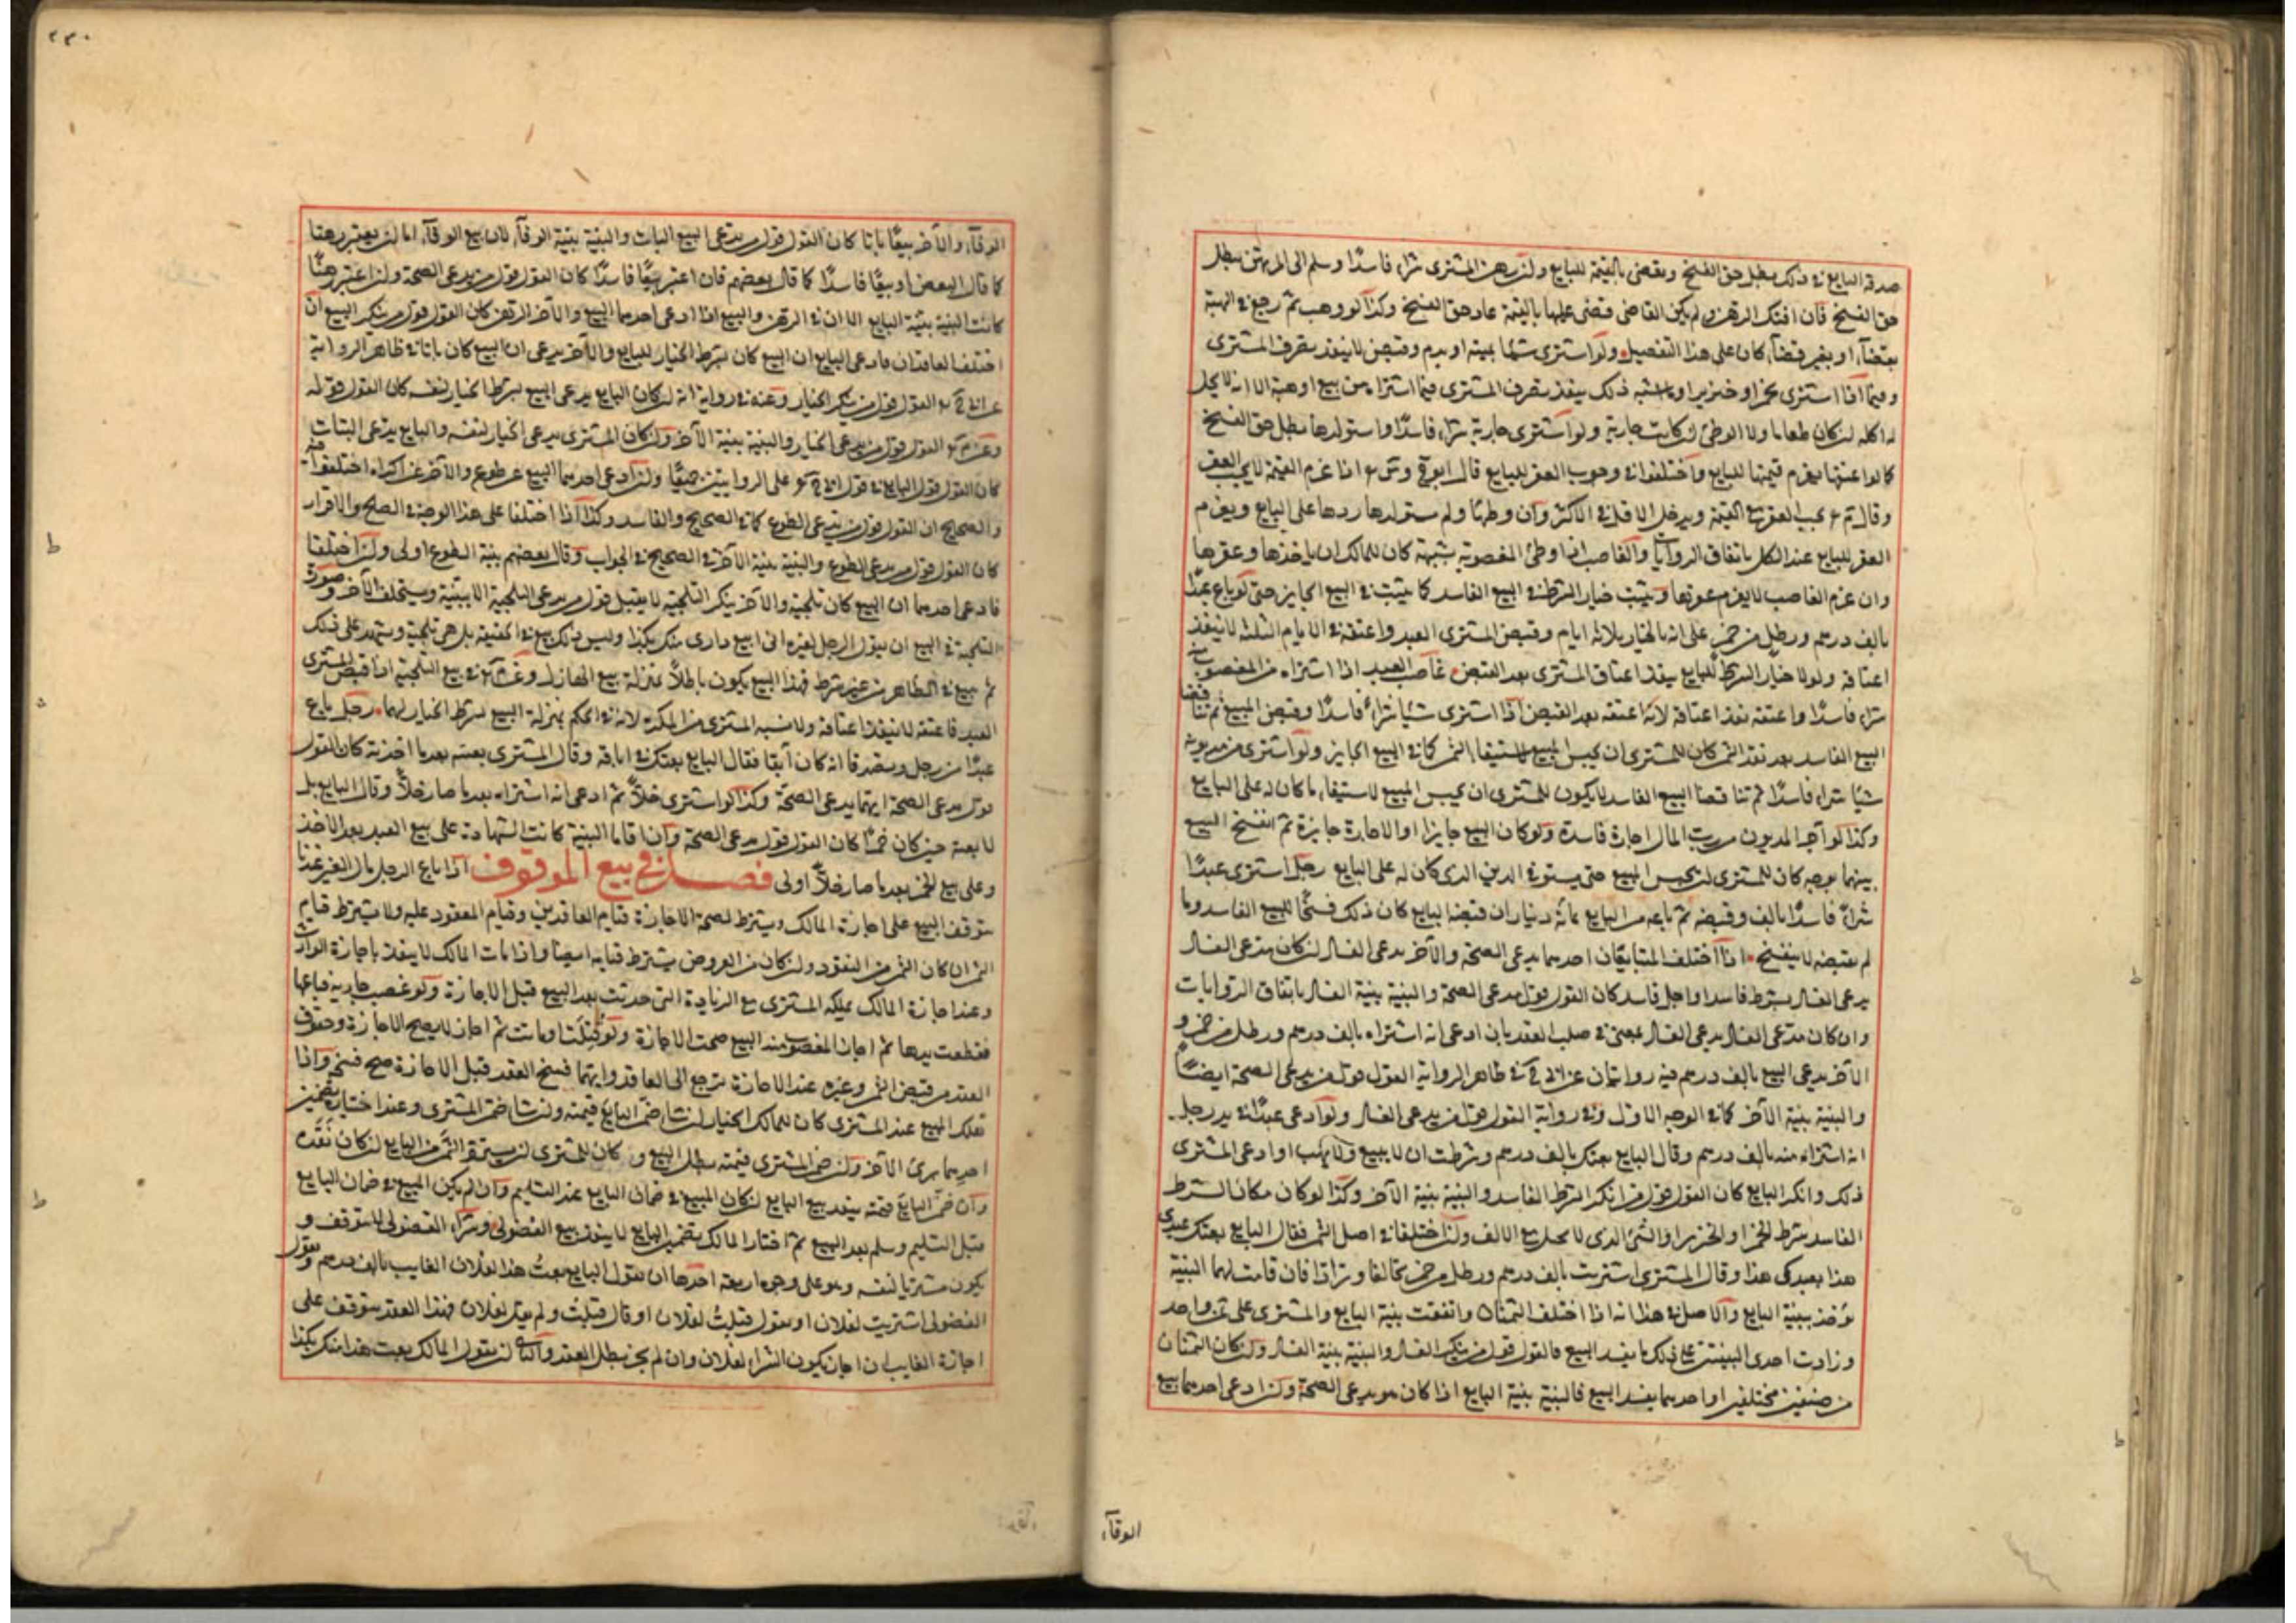 صدقه البايع في ذلك بطل حق الفسخ ويقضى بالقيمة للبايع ولن رهن المشترى شراء فاسدًا وسلم الى المرتهن بطل
حق الفسخ فان افتك الرهن ولم يكن القاضى قضى عليها بالقيمة عاد حق الفسخ وكذا لو وهب ثم رجع في الهبة
بقضاء او بغير قضاء كان على هذا التفصيل ولو اشترى شيئا بميتة او بدم وقبض لا ينفذ تصرف المشترى
وفيما اذا اشترى بخمر او خنزير او ما اشبه ذلك ينفذ تصرف المشترى فيما اشتراه من بيع او هبة الا انه لا يحل
له اكله لن كان طعاما ولا الوطئ لن كانت جارية ولو اشترى جارية شراء فاسدًا واستولدها بطل حق الفسخ
كما لو اعتقها يغرم قيمتها للبايع واختلفوا في وجوب العقر للبايع قال اذا غرم القيمة لا يجب العقر
وقال يجب العقر مع القيمة ويدخل الاقل في الاكثر وان وطئها ولم يستولدها ردها على البايع ويغرم
العقر للبايع عند الكل باتفاق الروايات والغاصب اذا وطئ المغصوبة بشبهة كان للمالك ان ياخذها وعقرها
وان غرم الغاصب لا يغرم عقرها ويثبت خيار الشرط في البيع الفاسد كما يثبت في البيع الجايز حتى لو باع عبدًا
بالف درهم ورطل من خمر على انه بالخيار ثلاثة ايام وقبض المشترى العبد واعتقه في الايام الثلثة لا ينفذ
اعتاقه ولولا خيار الشرط للبايع ينفذ اعتاق المشترى بعد القبض غاصب العبد اذا اشتراه من المغصوب منه
شراء فاسدًا واعتقه نفذ اعتاقه لانه اعتقه بعد القبض اذا اشترى شيئا شراء فاسدًا وقبض المبيع ثم تناقضا
البيع الفاسد بعد نقد الثمن كان للمشترى ان يحبس المبيع لاستيفاء الثمن كما في البيع الجايز ولو اشترى من مديونه
شيئا شراء فاسدًا ثم تناقضا البيع الفاسد لا يكون للمشترى ان يحبس المبيع لاستيفاء ما كان له على البايع
وكذا لو آجر المديون من رب المال اجارة فاسدة ولو كان البيع جايزا او الاجارة جايزة ثم انفسخ البيع
بينهما بوجه كان للمشترى لن يحبس المبيع حتى يستوفى الدين الذى كان له على البايع رجل اشترى عبدًا
شراءً فاسدًا بالف وقبضه ثم باعه من البايع بمائة دينار ان قبضه البايع كان ذلك فسخًا للبيع الفاسد وما
لم يقبضه لا ينفسخ اذا اختلف المتبايعان احدهما يدعى الصحة والآخر يدعى الفساد لن كان مدعى الفساد
يدعى الفساد بشرط فاسد او اجل فاسد كان القول قول مدعى الصحة والبينة بينة الفساد باتفاق الروايات
وان كان مدعى الفساد يدعى الفساد بمعنى في صلب العقد بان ادعى انه اشتراه بالف درهم ورطل من خمر و
الآخر يدعى البيع بالف درهم فيه روايتان عن في ظاهر الرواية القول قول من يدعى الصحة ايضًا
والبينة بينة الآخر كما في الوجه الاول وفي رواية القول قول من يدعى الفساد ولو ادعى عبدًا في يد رجل
انه اشتراه منه بالف درهم وقال البايع بعتك بالف درهم وشرطت ان لا يبيع ولا يهب او ادعى المشترى
ذلك وانكر البايع كان القول قول من انكر الشرط الفاسد والبينة بينة الآخر وكذا لو كان مكان الشرط
الفاسد شرط الخمر او الخنزير او الشئ الذى لا يحل مع الالف ولن اختلفا في اصل الثمن فقال البايع بعتك عبدى
هذا بعبدك هذا وقال المشترى اشتريت بالف درهم ورطل من خمر تحالفا وترادا فان قامت لهما البينة
يؤخذ ببينة البايع والاصل في هذا انه اذا اختلف الثمنان واتفقت بينة البايع والمشترى على ثمن واحد
وزادت احدى البينتين على ذلك ما يفسد البيع فالقول قول من ينكر الفساد والبينة بينة الفساد ولن كان الثمنان
من صنفين مختلفين او احدهما يفسد البيع فالبينة بينة البايع اذا كان هو يدعى الصحة ولن ادعى احدهما بيع
الوفاء
٢٣٠
الوفاء والآخر بيعًا باتا كان القول قول من يدعى البيع البات والبينة بينة الوفاء لان بيع الوفاء اما لن يعتبر رهنا
كما قال البعض او بيعًا فاسدًا كما قال بعضهم فان اعتبر بيعًا فاسدًا كان القول قول من يدعى الصحة ولن اعتبر رهنًا
كانت البينة بينة البايع الا ان في الرهن والبيع اذا ادعى احدهما البيع والآخر الرهن كان القول قول من ينكر البيع ان
اختلف العاقدان فادعى البايع ان البيع كان بشرط الخيار للبايع والآخر يدعى ان البيع كان باتا في ظاهر الرواية
القول قول من ينكر الخيار وعنه في رواية انه لن كان البايع يدعى البيع بشرط الخيار لنفسه كان القول قوله
القول قول من يدعى الخيار والبينة بينة الآخر ولن كان المشترى يدعى الخيار لنفسه والبايع يدعى البتات
كان القول قول البايع في قول على الروايتين جميعًا ولن ادعى احدهما البيع عن طوع والآخر عن اكراه اختلفوا فيه
والصحيح ان القول قول من يدعى الطوع كما في الصحيح والفاسد وكذا اذا اختلفا على هذا الوجه في الصلح والاقرار
كان القول قول من يدعى الطوع والبينة بينة الآخر في الصحيح في الجواب وقال بعضهم بينة الطوع اولى ولن اختلفا
فادعى احدهما ان البيع كان تلجية والآخر ينكر التلجية لا يقبل قول من يدعى التلجية الا ببينة ويستحلف الآخر وصورة
التلجية في البيع ان يقول الرجل لغيره انى ابيع دارى منك بكذا وليس ذلك ببيع في الحقيقة بل هى تلجية ويشهد على ذلك
ثم يبيع في الظاهر من غير شرط فهذا البيع يكون باطلاً بمنزلة بيع الهازل في بيع التلجية اذا قبض المشترى
العبد فاعتقه لا ينفذ اعتاقه ولا تشبه المشترى من المكره لانه في الحكم بمنزلة البيع بشرط الخيار لهما رجل باع
عبدًا من رجل وتصدقا انه كان آبقا فقال البايع بعتك في اباقه وقال المشترى بعته بعد ما اخذته كان القول
قول من يدعى الصحة ايهما يدعى الصحة وكذا لو اشترى خلاً ثم ادعى انه اشتراه بعد ما صار خلاً وقال البايع بل
لا بعته حين كان خمرًا كان القول قول من يدعى الصحة وان اقاما البينة كانت الشهادة على بيع العبد بعد الاخذ
وعلى بيع الخمر بعد ما صار خلاً اولى فصل في بيع الموقوف اذا باع الرجل مال الغير عندنا
يتوقف البيع على اجازة المالك ويشترط لصحة الاجازة قيام العاقدين وقيام المعقود عليه ولا يشترط قيام
الثمن ان كان الثمن من النقود ولن كان من العروض يشترط قيامه ايضا واذا مات المالك لا ينفذ باجازة الوارث
وعند اجازة المالك يملكه المشترى مع الزيادة التى حدثت بعد البيع قبل الاجازة ولو غصب جارية فباعها
فقطعت يدها ثم اجاز المغصوب منه البيع صحت الاجازة ولو قتلت او ماتت ثم اجاز لا يصح الاجازة وحقوق
العقد من قبض الثمن وغيره عند الاجازة يرجع الى العاقد وايهما فسخ العقد قبل الاجازة صح فسخه واذا
هلك المبيع عند المشترى كان للمالك الخيار لن شاء ضمن البايع قيمته ولن شاء ضمن المشترى وعند اختيار تضمين
احدهما برئ الآخر ولن ضمن المشترى قيمته بطل البيع وكان للمشترى لن يسترد الثمن من البايع لن كان نقده
وان ضمن البايع قيمته ينفذ بيع البايع لن كان المبيع في ضمان البايع عند التسليم وان لم يكن المبيع في ضمان البايع
قبل التسليم وسلم بعد البيع ثم اختار المالك تضمين البايع لا ينفذ بيع الفضولى وشراء الفضولى لا يتوقف و
يكون مشتريا لنفسه وهو على وجوه اربعة احدها ان يقول البايع بعت هذا لفلان الغايب بالف درهم ويقول
الفضولى اشتريت لفلان او يقول قبلت لفلان او قال قبلت ولم يقل لفلان فهذا العقد يتوقف على
اجازة الغايب ان اجاز يكون الشراء لفلان وان لم يجز بطل العقد والثانى لن يقول المالك بعت هذا منك بكذا